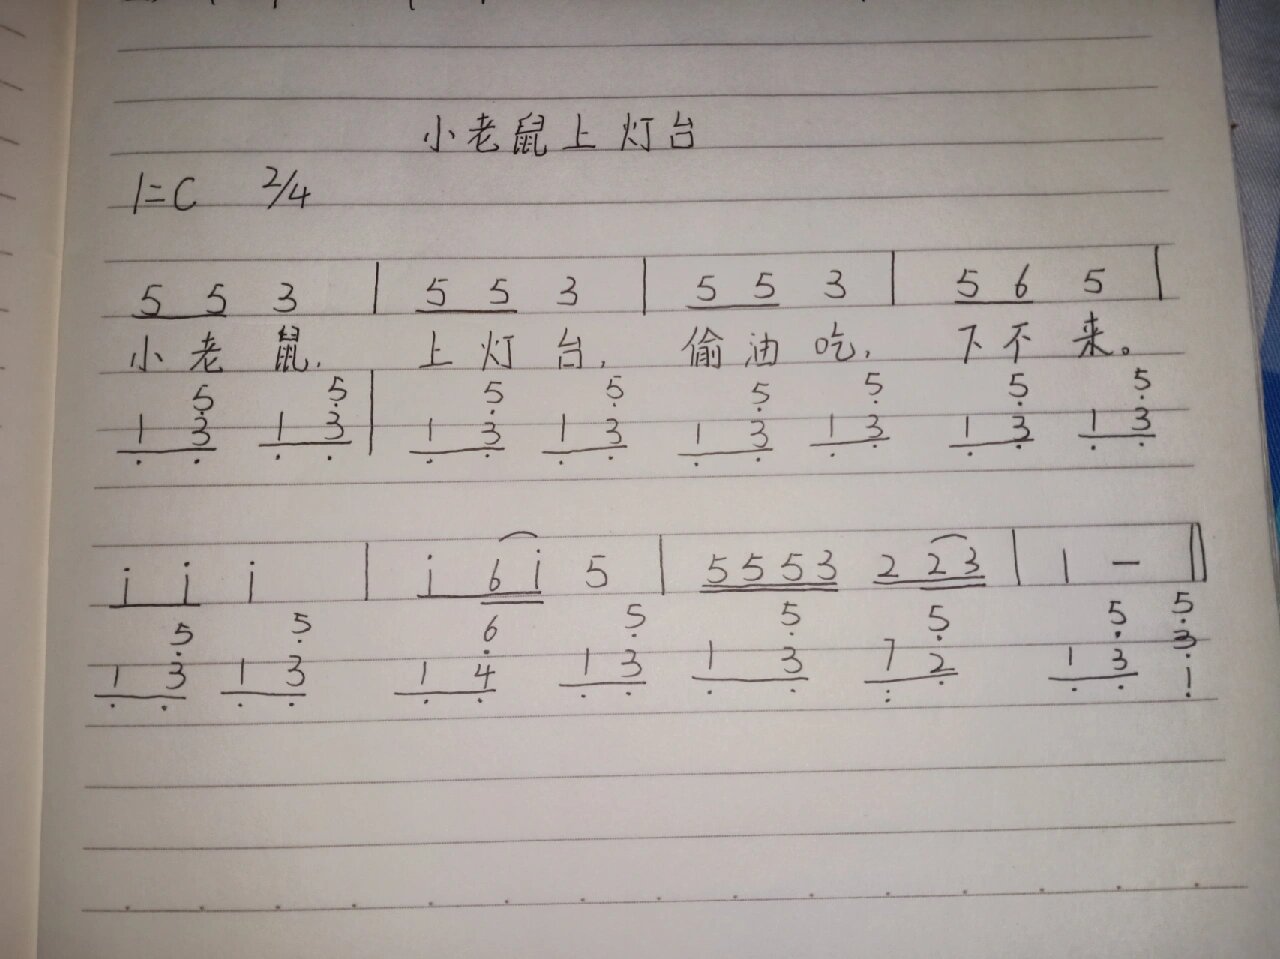 小老鼠上灯台
1=C 2/4
5 5 3 | 5 5 3 | 5 5 3 | 5 6 5 |
小老鼠, 上灯台, 偷油吃, 下不来。
5 5 5 5 5 5 5 5
1 3 1 3 | 1 3 1 3 1 3 1 3 1 3 1 3
i i i | i 6 i 5 | 5 5 5 3 2 2 3 | 1 — ‖
5 5 6 5 5 5 5 5
1 3 1 3 1 4 1 3 1 3 7 2 1 3 3
1